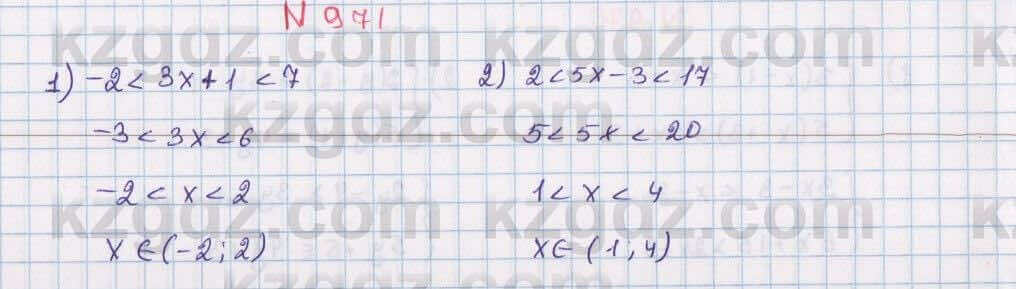 N 971
1) -2 < 3x + 1 < 7
-3 < 3x < 6
-2 < x < 2
x ∈ (-2; 2)
2) 2 < 5x - 3 < 17
5 < 5x < 20
1 < x < 4
x ∈ (1; 4)
kzgdz.com
kzgdz.com
kzgdz.com
kzgdz.com